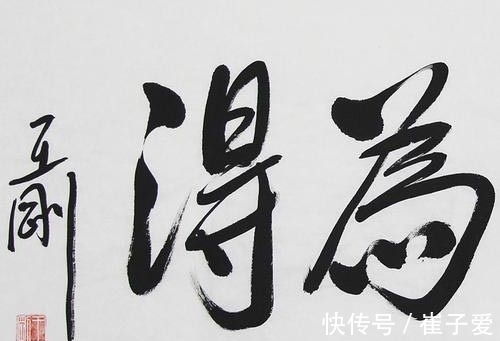 為得
王剛
快传号/崔子爱